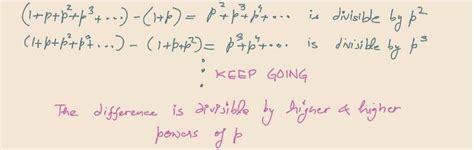 (1+p+p²+p³+...) - (1+p) = p²+p³+p⁴+... is divisible by p²
(1+p+p²+p³+...) - (1+p+p²) = p³+p⁴+... is divisible by p³
⋮ KEEP GOING
The difference is divisible by higher & higher
powers of p